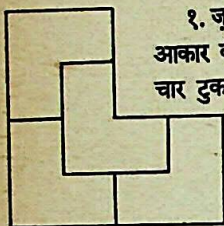 १. जु
आकार
चार टुक